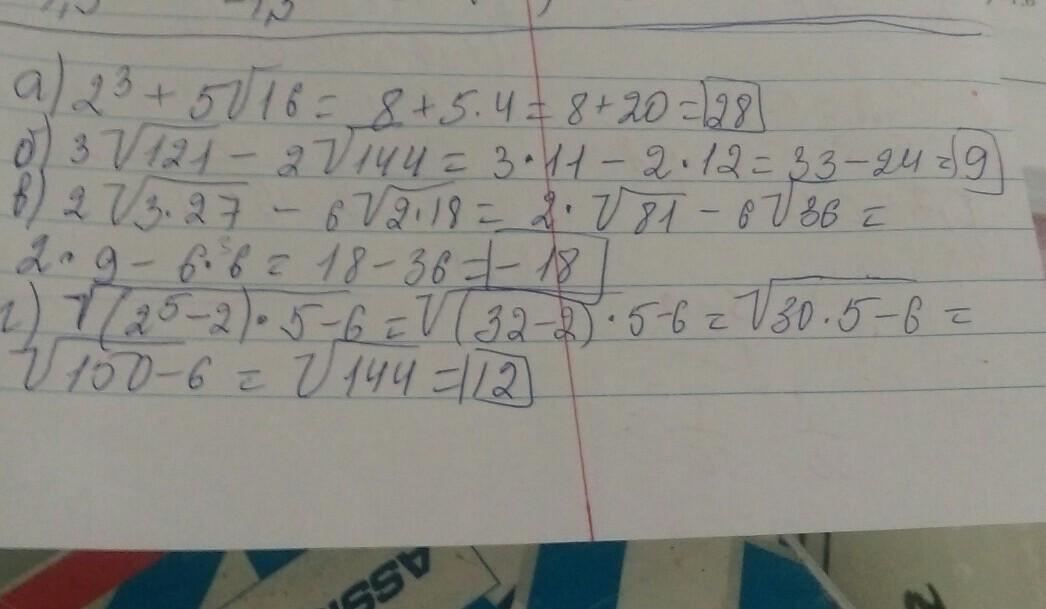 а) 2³ + 5√16 = 8 + 5·4 = 8 + 20 = 28
б) 3√121 − 2√144 = 3·11 − 2·12 = 33 − 24 = 9
в) 2√3·27 − 6√2·18 = 2·√81 − 6√36 =
2·9 − 6·6 = 18 − 36 = −18
г) √(2⁵−2)·5−6 = √(32−2)·5−6 = √30·5−6 =
√150−6 = √144 = 12
ASS
N